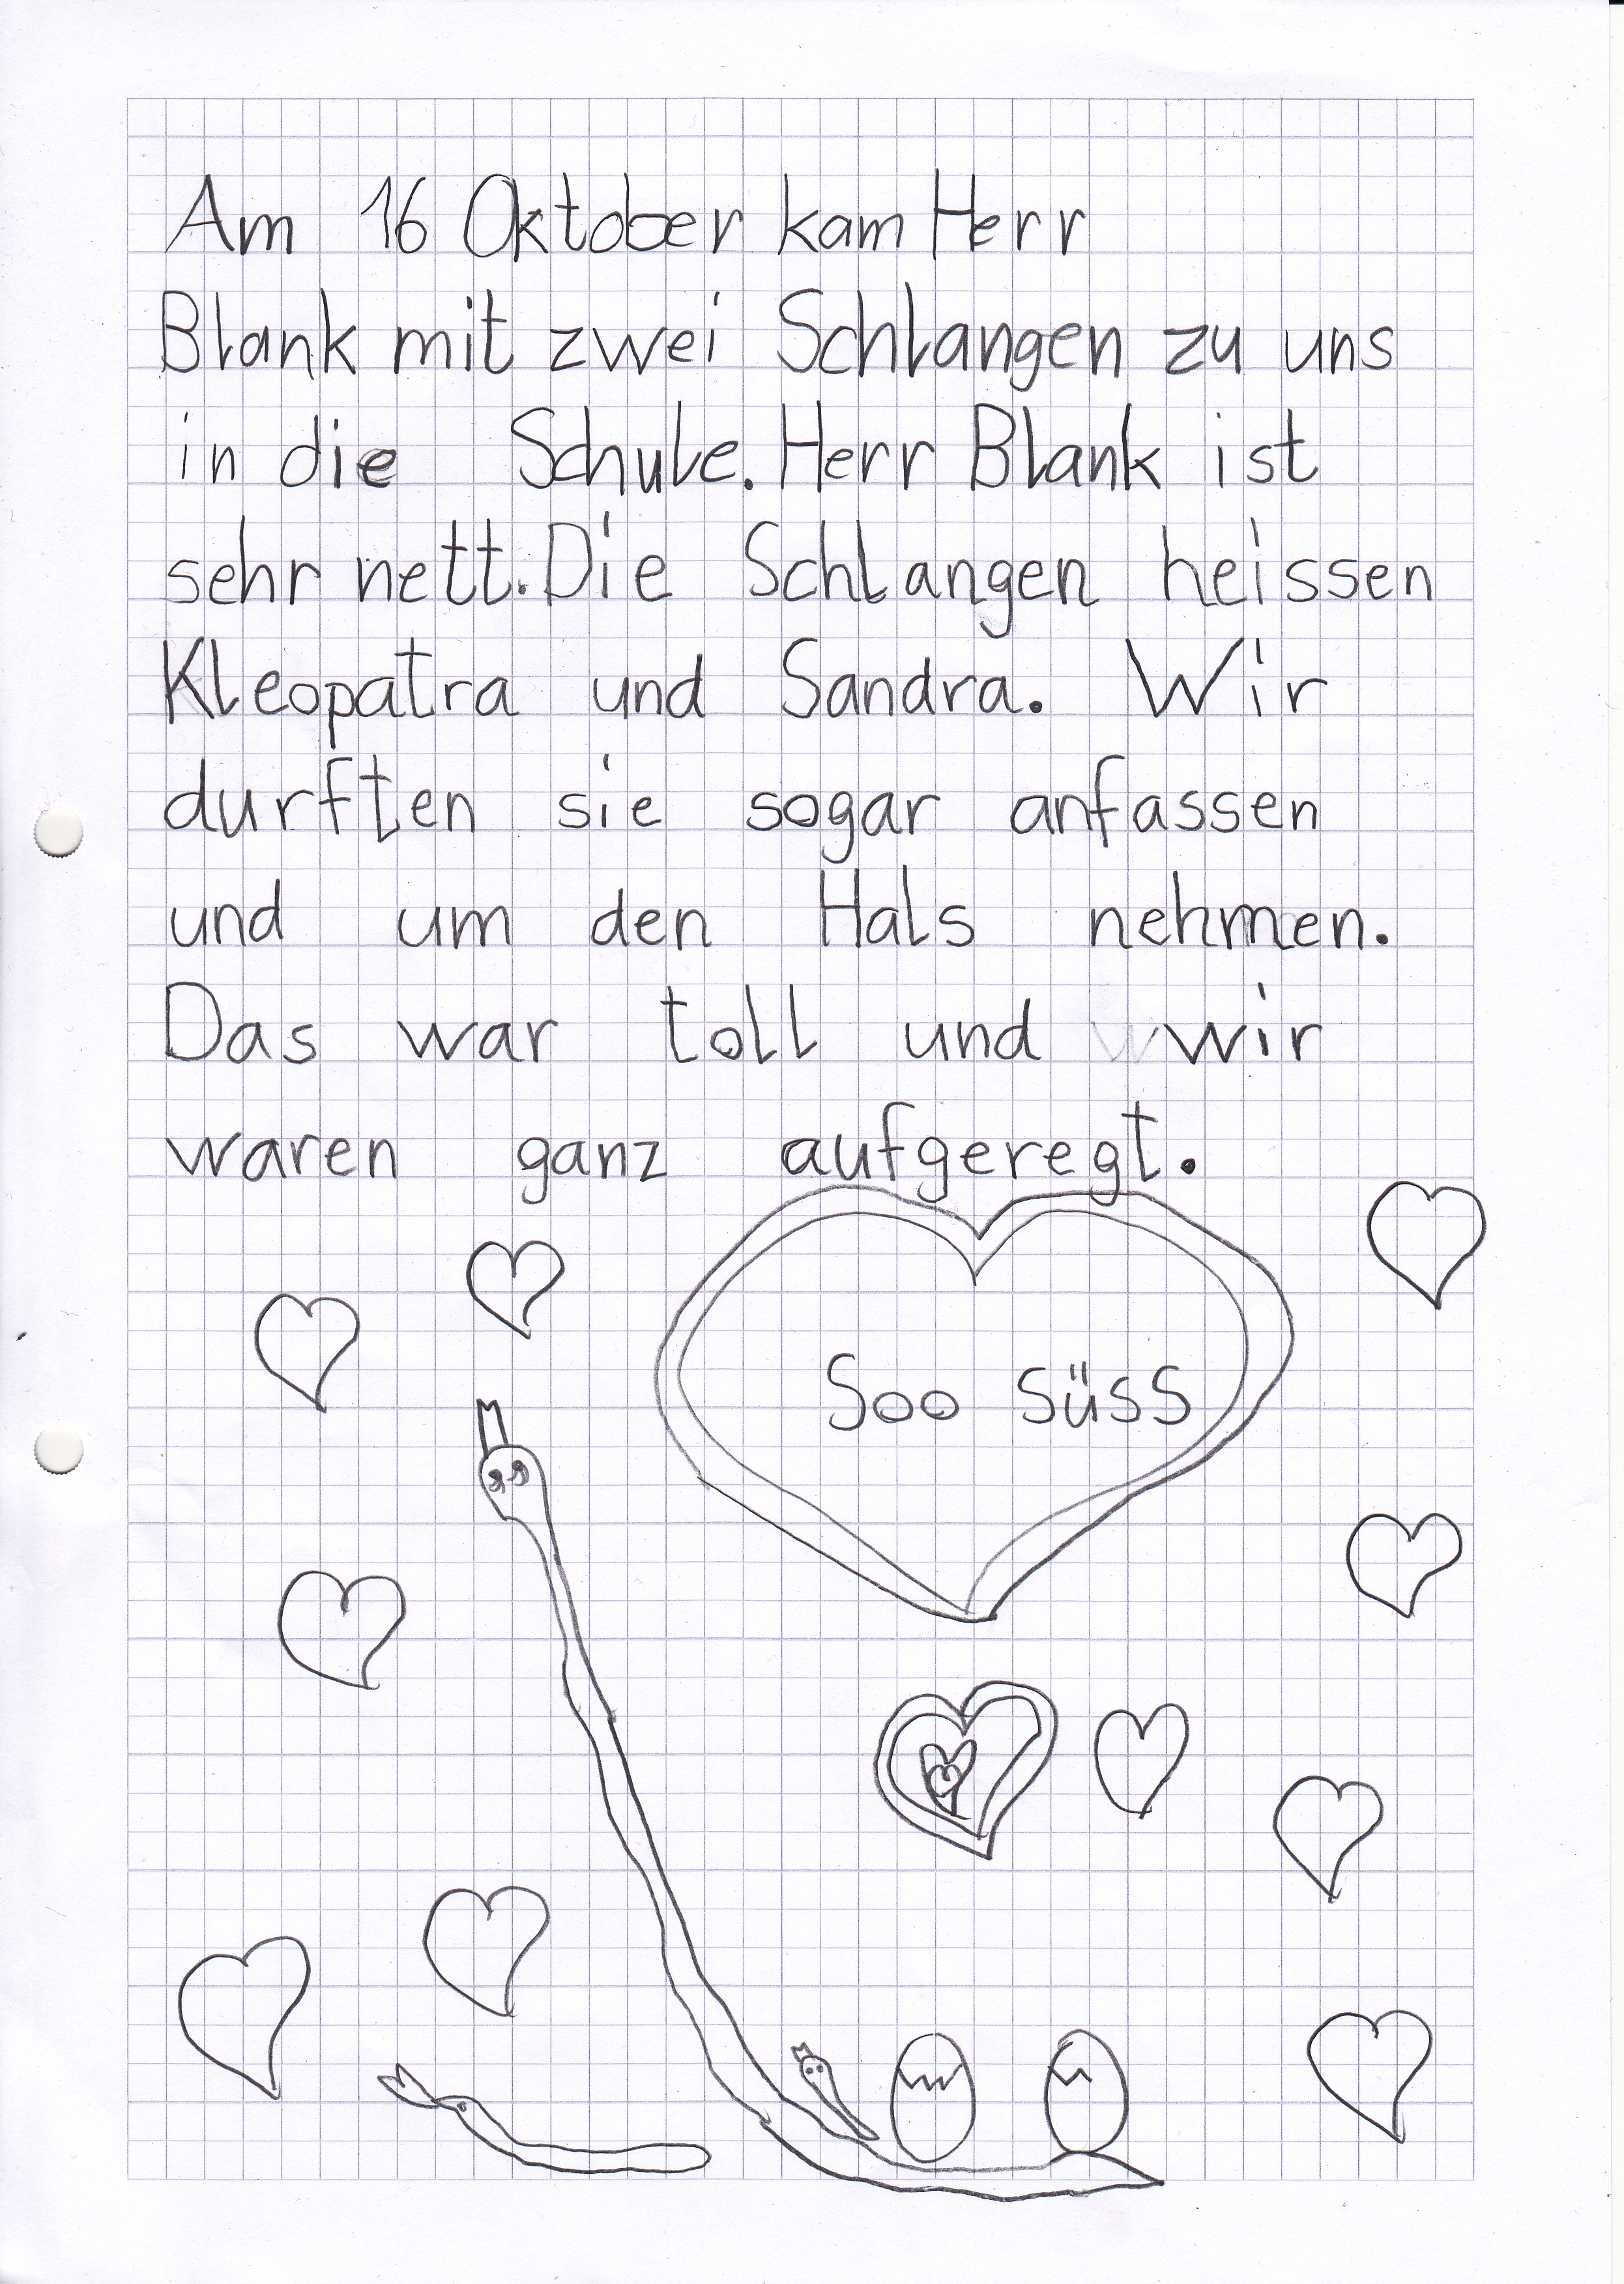 Am 16 Oktober kam Herr
Blank mit zwei Schlangen zu uns
in die Schule. Herr Blank ist
sehr nett. Die Schlangen heissen
Kleopatra und Sandra. Wir
durften sie sogar anfassen
und um den Hals nehmen.
Das war toll und wir
waren ganz aufgeregt.
Soo süss